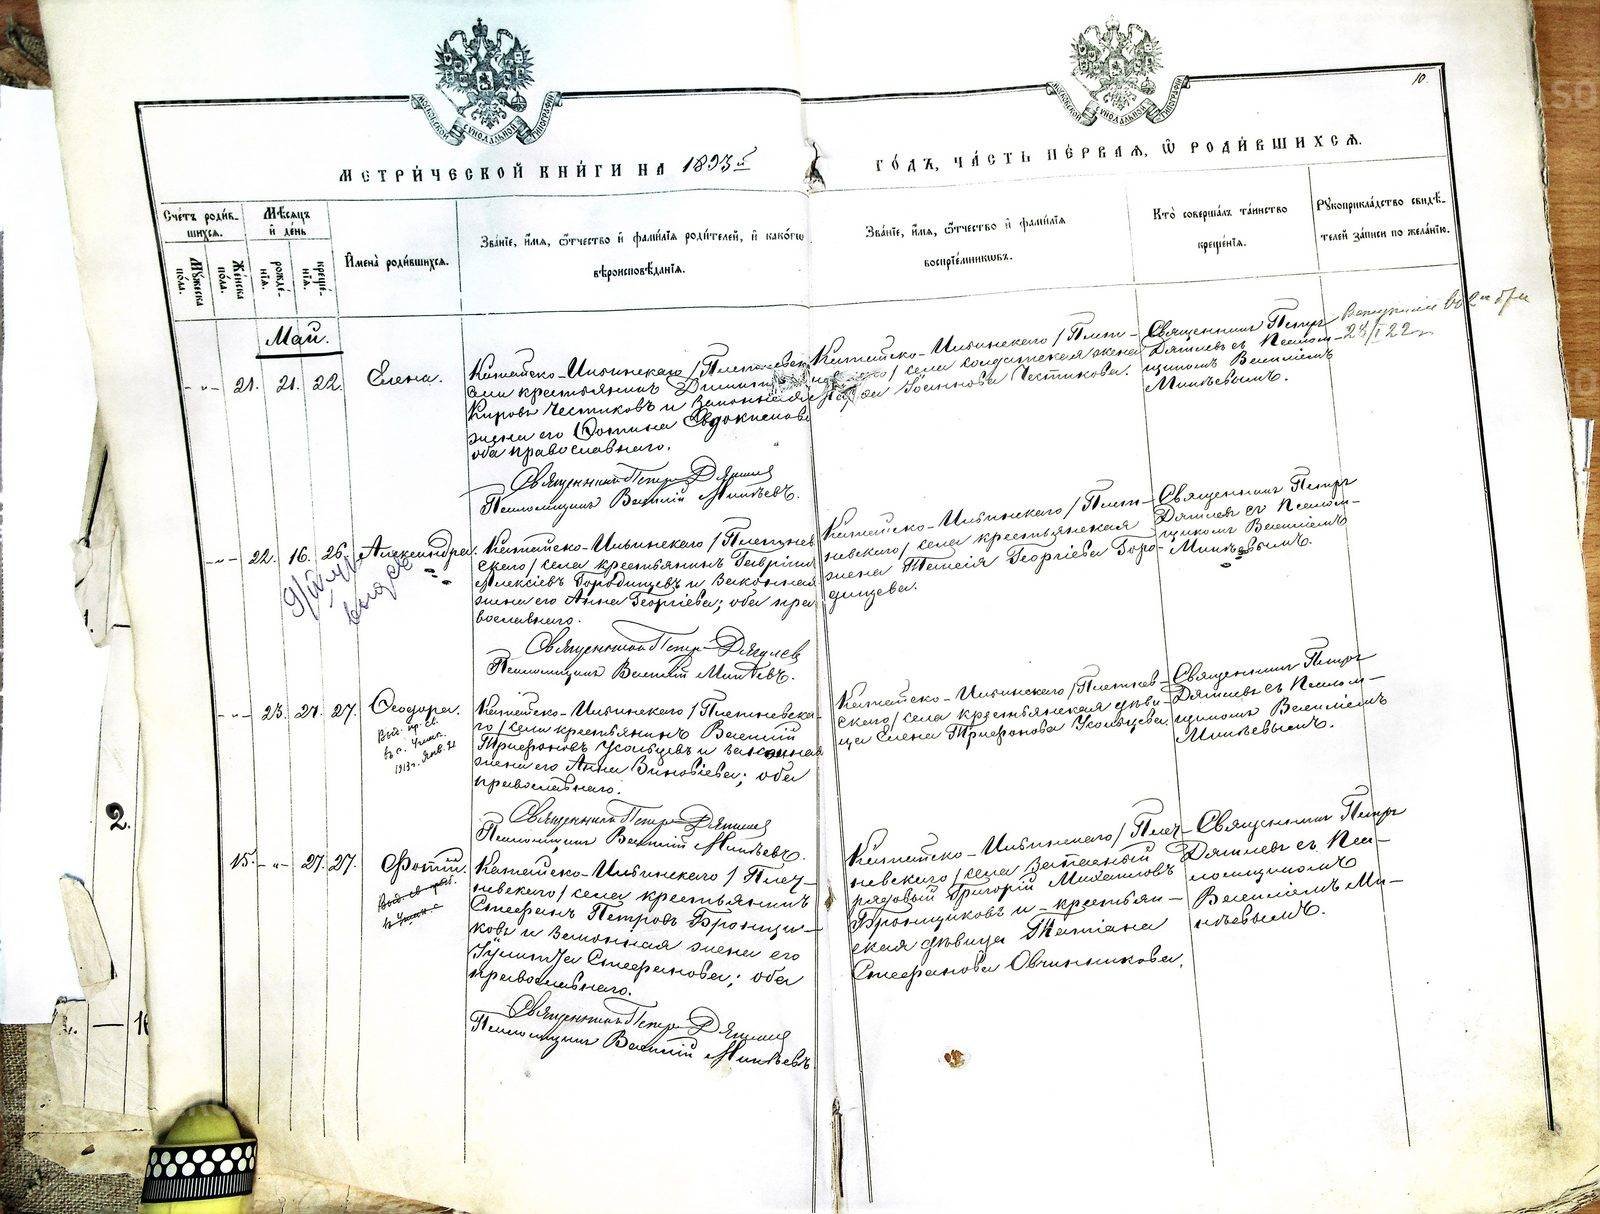 МОСКОВСКОЙ СѴНОДАЛЬНОЙ ТИПОГРАФІИ
МОСКОВСКОЙ СѴНОДАЛЬНОЙ ТИПОГРАФІИ
10.
МЕТРИ́ЧЕСКОЙ КНИ́ГИ НА 1893й
ГО́ДЪ, ЧА́СТЬ ПЕ́РВАЯ, Ѿ РОДИ́ВШИХСЯ.
Сче́тъ роди́в-
шихся.
Му́жеска по́ла.
Же́нска по́ла.
Мѣ́сяцъ
и де́нь
рожде́-
нїя.
креще́-
нїя.
И́мена роди́вшихся.
Зва́нїе, и́мя, ѻ҆́тчество и фами́лїя роди́телей, и како́гѡ
вѣроисповѣ́данїя.
Зва́нїе, и́мя, ѻ҆́тчество и фами́лїя
воспрїе́мникѡвъ.
Кто̀ соверша́лъ та́инство
креще́нїя.
Рукоприкла́дство свидѣ́-
телей за́писи по жела́нїю.
Май.
- „ - 21. 21. 22.
Елена.
Китайско-Ильинскаго /Плетневск
села крестьянинъ Димит
Кировъ Честиковъ и законная
жена его Фотина Евдокимова
оба православнаго.
Священникъ Петръ Дягилев
Псаломщикъ Василій Михѣевъ.
Китайско-Ильинскаго /Плет-
/ села солдатская жена
Іоаннова Честикова.
Священникъ Петръ
Дягилевъ съ Псалом-
щикомъ Василіемъ
Михѣевымъ.
23/I 22
- „ - 22. 16. 26.
Александра.
Китайско-Ильинскаго /Плетнев
скаго/ села крестьянинъ Гавріилъ
Алексіевъ Городищевъ и законная
жена его Анна Георгіева; оба пра
вославнаго.
Священникъ Петръ Дягилев
Псаломщикъ Василій Михѣевъ.
Китайско-Ильинскаго /Плет-
невскаго/ села крестьянская
жена Таисія Георгіева Горо-
дищева.
Священникъ Петръ
Дягилевъ съ Псалом-
щикомъ Василіемъ
Михѣевымъ.
- „ - 23. 27. 27.
Ѳеодора.
1913 г. Янв. 21
Китайско-Ильинскаго /Плетневска-
го/ села крестьянинъ Василій
Трифоновъ Усольцевъ и законная
жена его Анна Зиновіева; оба
православнаго.
Священникъ Петръ Дягилев
Псаломщикъ Василій Михѣевъ.
Китайско-Ильинскаго /Плетнев-
скаго/ села крестьянская дѣви-
ца Елена Трифонова Усольцева.
Священникъ Петръ
Дягилевъ съ Псалом-
щикомъ Василіемъ
Михѣевымъ.
15. - „ - 27. 27.
Фотій.
Китайско-Ильинскаго /Плет-
невскаго/ села крестьянинъ
Стефанъ Петровъ Бронщи-
ковъ и законная жена его
Іулитта Стефанова; оба
православнаго.
Священникъ Петръ Дягилев
Псаломщикъ Василій Михѣевъ.
Китайско-Ильинскаго /Плет-
невскаго/ села запасный
рядовый Григорій Михаиловъ
Бронщиковъ и крестьян-
ская дѣвица Татіана
Стефанова Овчинникова.
Священникъ Петръ
Дягилевъ съ Пса-
ломщикомъ
Василіемъ Ми-
хѣевымъ.
2.